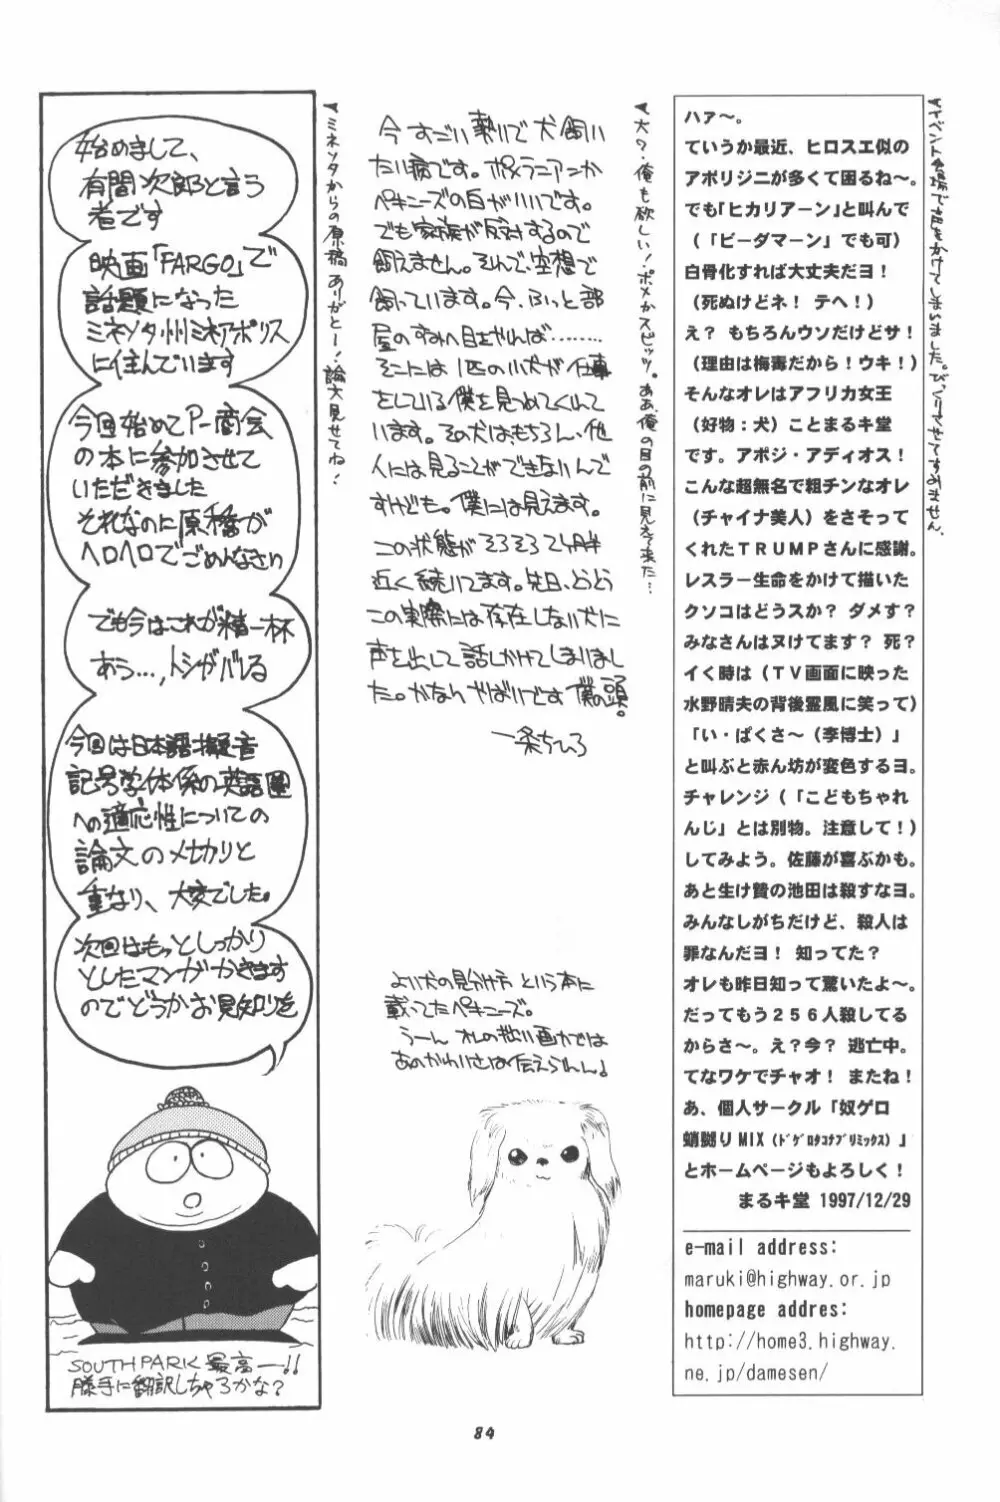 ハァ〜。
ていうか最近、ヒロスエ似の
アボリジニが多くて困るね〜。
でも｢ヒカリアーン｣と叫んで
（「ビーダマーン」でも可）
白骨化すれば大丈夫だヨ！
（死ぬけどネ！ テへ！）
え？ もちろんウソだけどサ！
（理由は梅毒だから！ウキ！）
そんなオレはアフリカ女王
（好物：犬）ことまるキ堂
です。アポジ・アディオス！
こんな超無名で粗チンなオレ
（チャイナ美人）をさそって
くれたＴＲＵＭＰさんに感謝。
レスラー生命をかけて描いた
クソコはどうスか？ ダメす？
みなさんはヌけてます？ 死？
イく時は（ＴＶ画面に映った
水野晴夫の背後霊風に笑って）
「い・ぱくさ〜（李博士）」
と叫ぶと赤ん坊が変色するヨ。
チャレンジ（「こどもちゃれ
んじ」とは別物。注意して！）
してみよう。佐藤が喜ぶかも。
あと生け贄の池田は殺すなヨ。
みんなしがちだけど、殺人は
罪なんだヨ！ 知ってた？
オレも昨日知って驚いたよ〜。
だってもう２５６人殺してる
からさ〜。え？今？ 逃亡中。
てなワケでチャオ！ またね！
あ、個人サークル「奴ゲロ
蛸嬲りMIX（ﾄﾞｹﾞﾛﾀｺﾅﾌﾞﾘﾐｯｸｽ）」
とホームページもよろしく！
まるキ堂 1997/12/29
e-mail address:
maruki@highway.or.jp
homepage addres:
http://home3.highway.
ne.jp/damesen/
大ワ・俺も欲しい！ポメかスピッツ。ああ、俺の目の前に見えて来た…
今すごい勢いで犬飼い
たい病です。ポメラニアンか
ペキニーズの白がいいです。
でも家族が反対するので
飼えません。そんで、空想で
飼っています。今、ふっと部
屋のすみへ目をやれば………
そこには1匹の小犬が仕事
をしている僕を見つめてくれて
います。その犬は、もちろん、他
人には見ることができないんで
すけども。僕には見えます。
この状態がそろそろ2ヶ月半
近く続いてます。先日、とうとう
この実際には存在しない犬に
声を出して話しかけてしまいまし
た。かなりやばいです僕の頭。
一条ちひろ
よい犬の見分け方 という本に
載ってたペキニーズ。
うーん オレの拙い画力では
あのかわいさは伝えらんん♩
ミネソタからの原稿ありがとー！論文見せてね！
始めまして、
有間次郎と言う
者です
映画「FARGO」で
話題になった
ミネソタ州ミネアポリス
に住んでいます
今回始めてP-商会
の本に参加させて
いただきました
それなのに原稿が
ヘロヘロでごめんなさい
でも今はこれが精一杯
あう…,トシがバレる
今回は日本語擬音
記号学体係の英語圏
への適応性についての
論文のメ切りと
重なり、大変でした。
次回はもっとしっかり
としたマンガかきます
のでどうかお見知りを
SOUTH PARK 最高―!!
勝手に翻訳しちゃろかな？
84